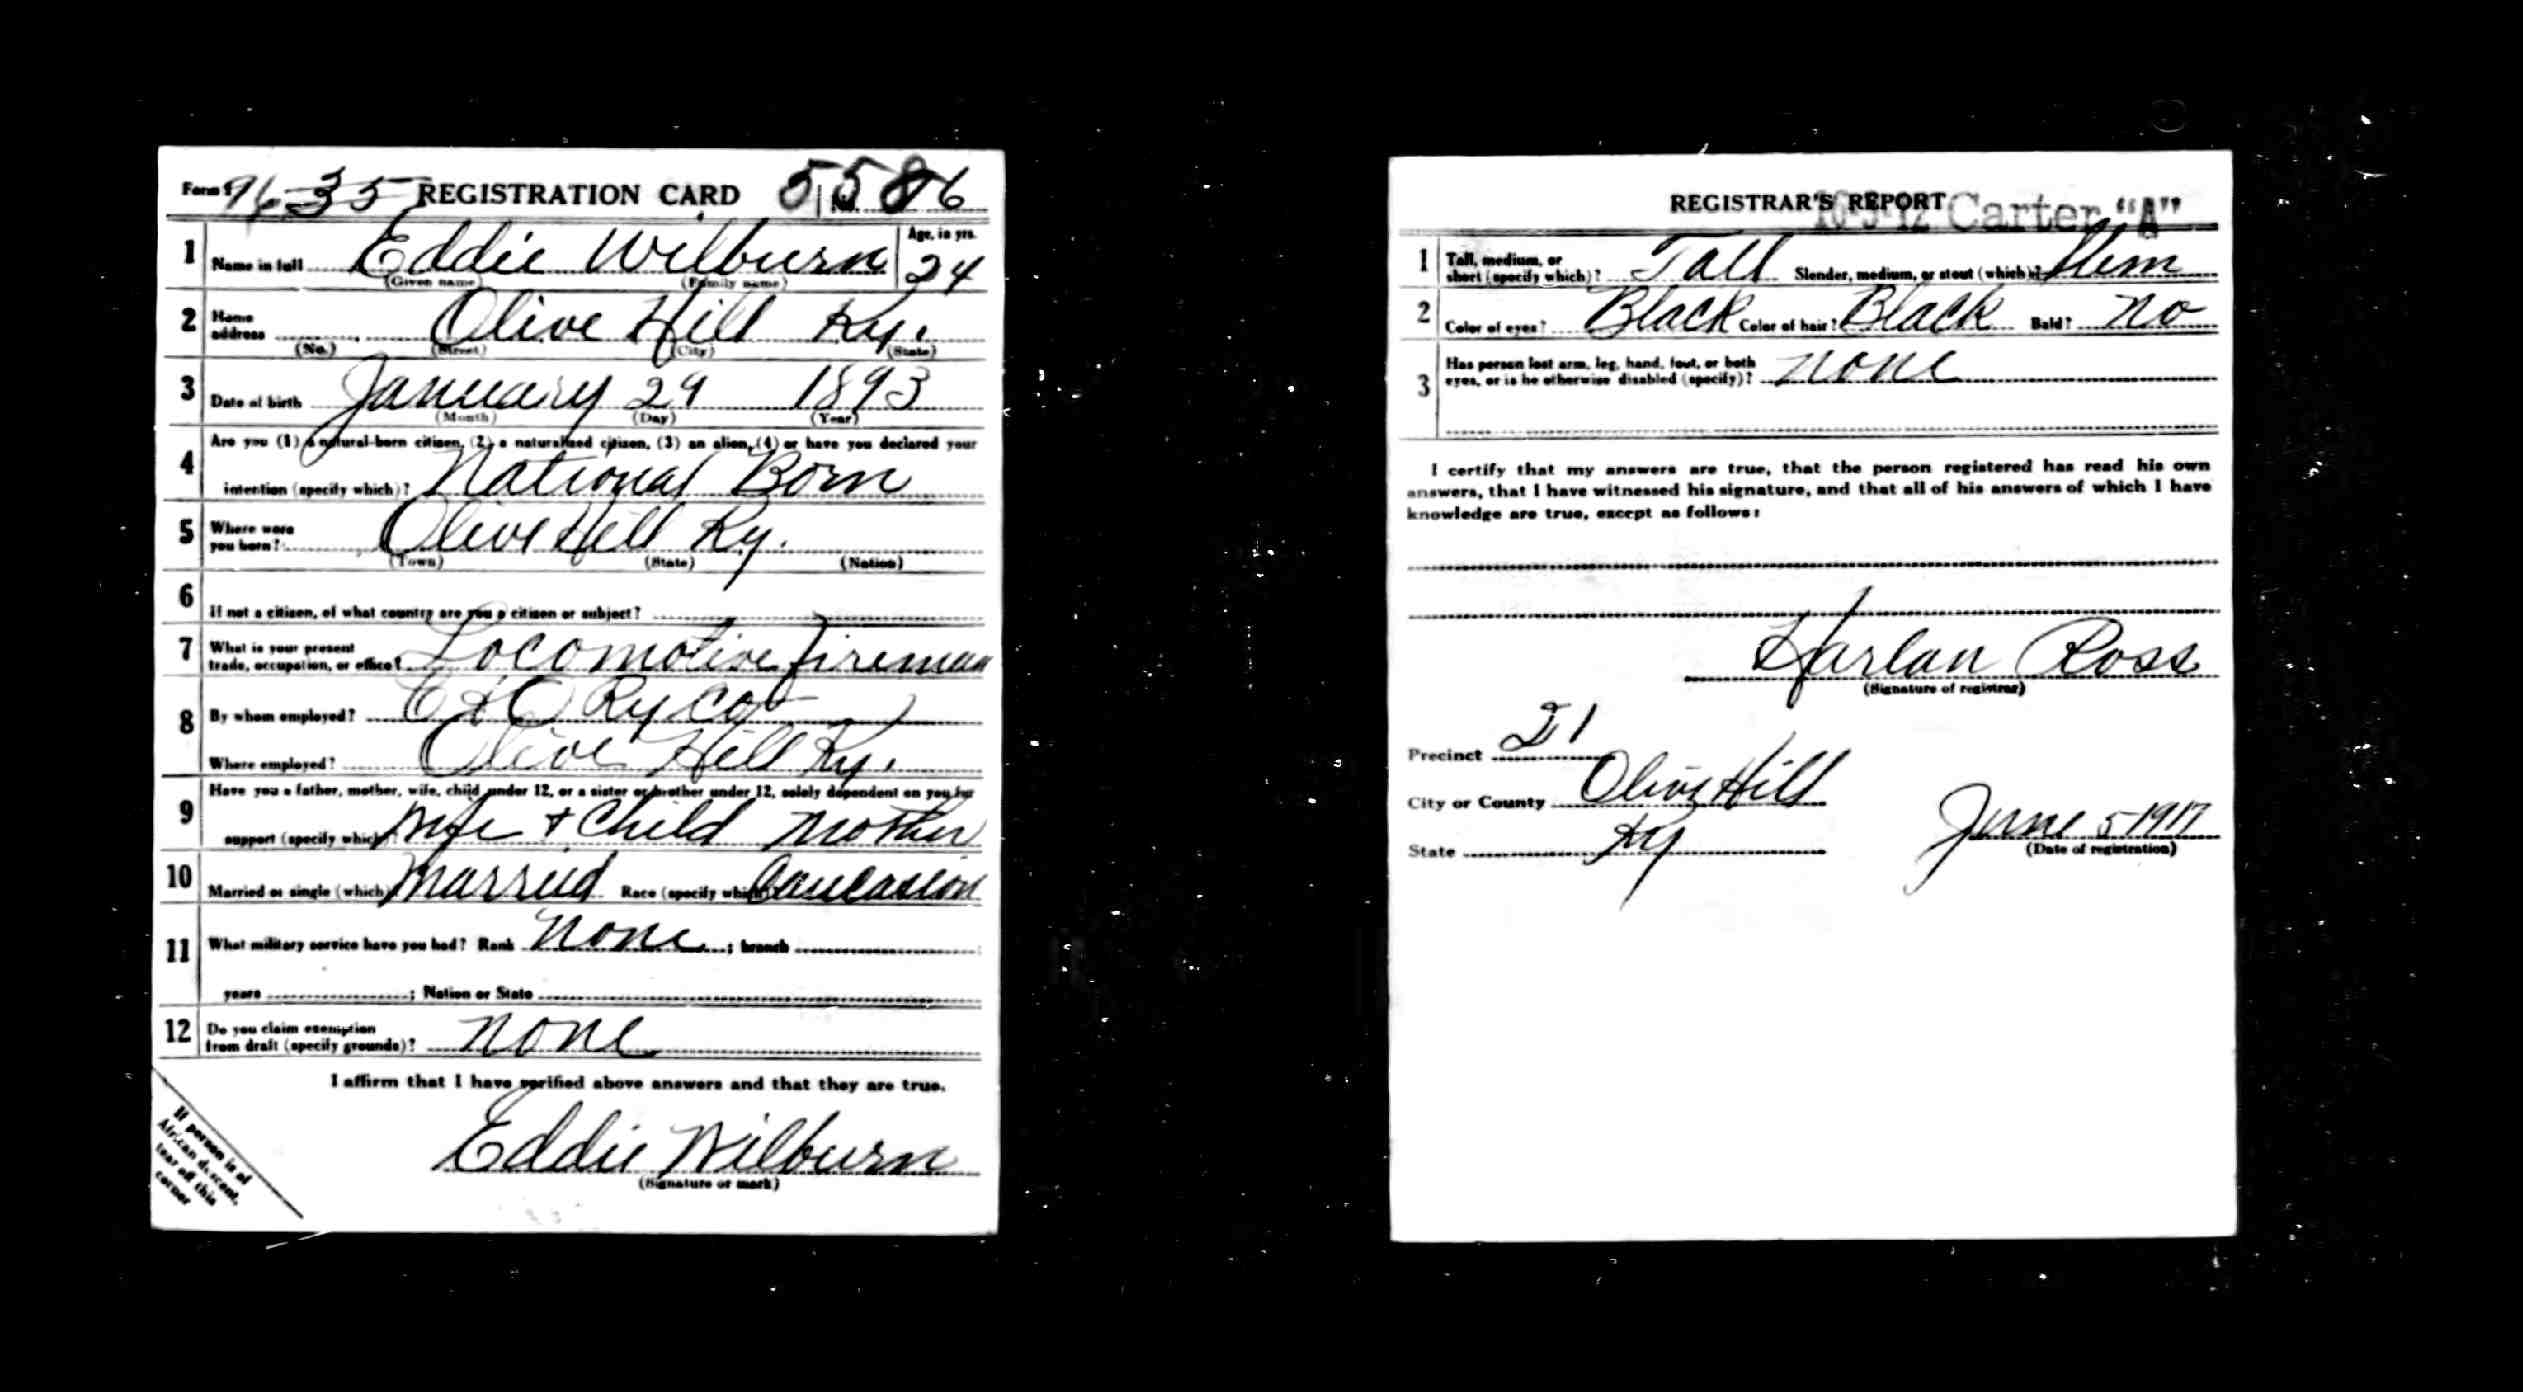 Form 1 9635 REGISTRATION CARD No. 5586
1 Name in full Eddie Wilburn Age, in yrs. 24
(Given name) (Family name)
2 Home address Olive Hill Ky.
(No.) (Street) (City) (State)
3 Date of birth January 29 1893
(Month) (Day) (Year)
4 Are you (1) a natural-born citizen, (2) a naturalized citizen, (3) an alien, (4) or have you declared your
intention (specify which)? National Born
5 Where were you born? Olive Hill Ky.
(Town) (State) (Nation)
6 If not a citizen, of what country are you a citizen or subject?
7 What is your present trade, occupation, or office? Locomotive fireman
8 By whom employed? C & O Ry Co
Where employed? Olive Hill Ky.
9 Have you a father, mother, wife, child under 12, or a sister or brother under 12, solely dependent on you for
support (specify which)? Wife + Child Mother
10 Married or single (which)? Married Race (specify which)? Caucasion
11 What military service have you had? Rank None ; branch
years ; Nation or State
12 Do you claim exemption from draft (specify grounds)? None
I affirm that I have verified above answers and that they are true.
Eddie Wilburn
(Signature or mark)
If person is of
African descent,
tear off this
corner
REGISTRAR'S REPORT
Carter "A"
1 Tall, medium, or short (specify which)? Tall Slender, medium, or stout (which)? Slim
2 Color of eyes? Black Color of hair? Black Bald? No
3 Has person lost arm, leg, hand, foot, or both
eyes, or is he otherwise disabled (specify)? None
I certify that my answers are true, that the person registered has read his own
answers, that I have witnessed his signature, and that all of his answers of which I have
knowledge are true, except as follows:
Harlan Ross
(Signature of registrar)
Precinct 21
City or County Olive Hill
State Ky
June 5 1917
(Date of registration)